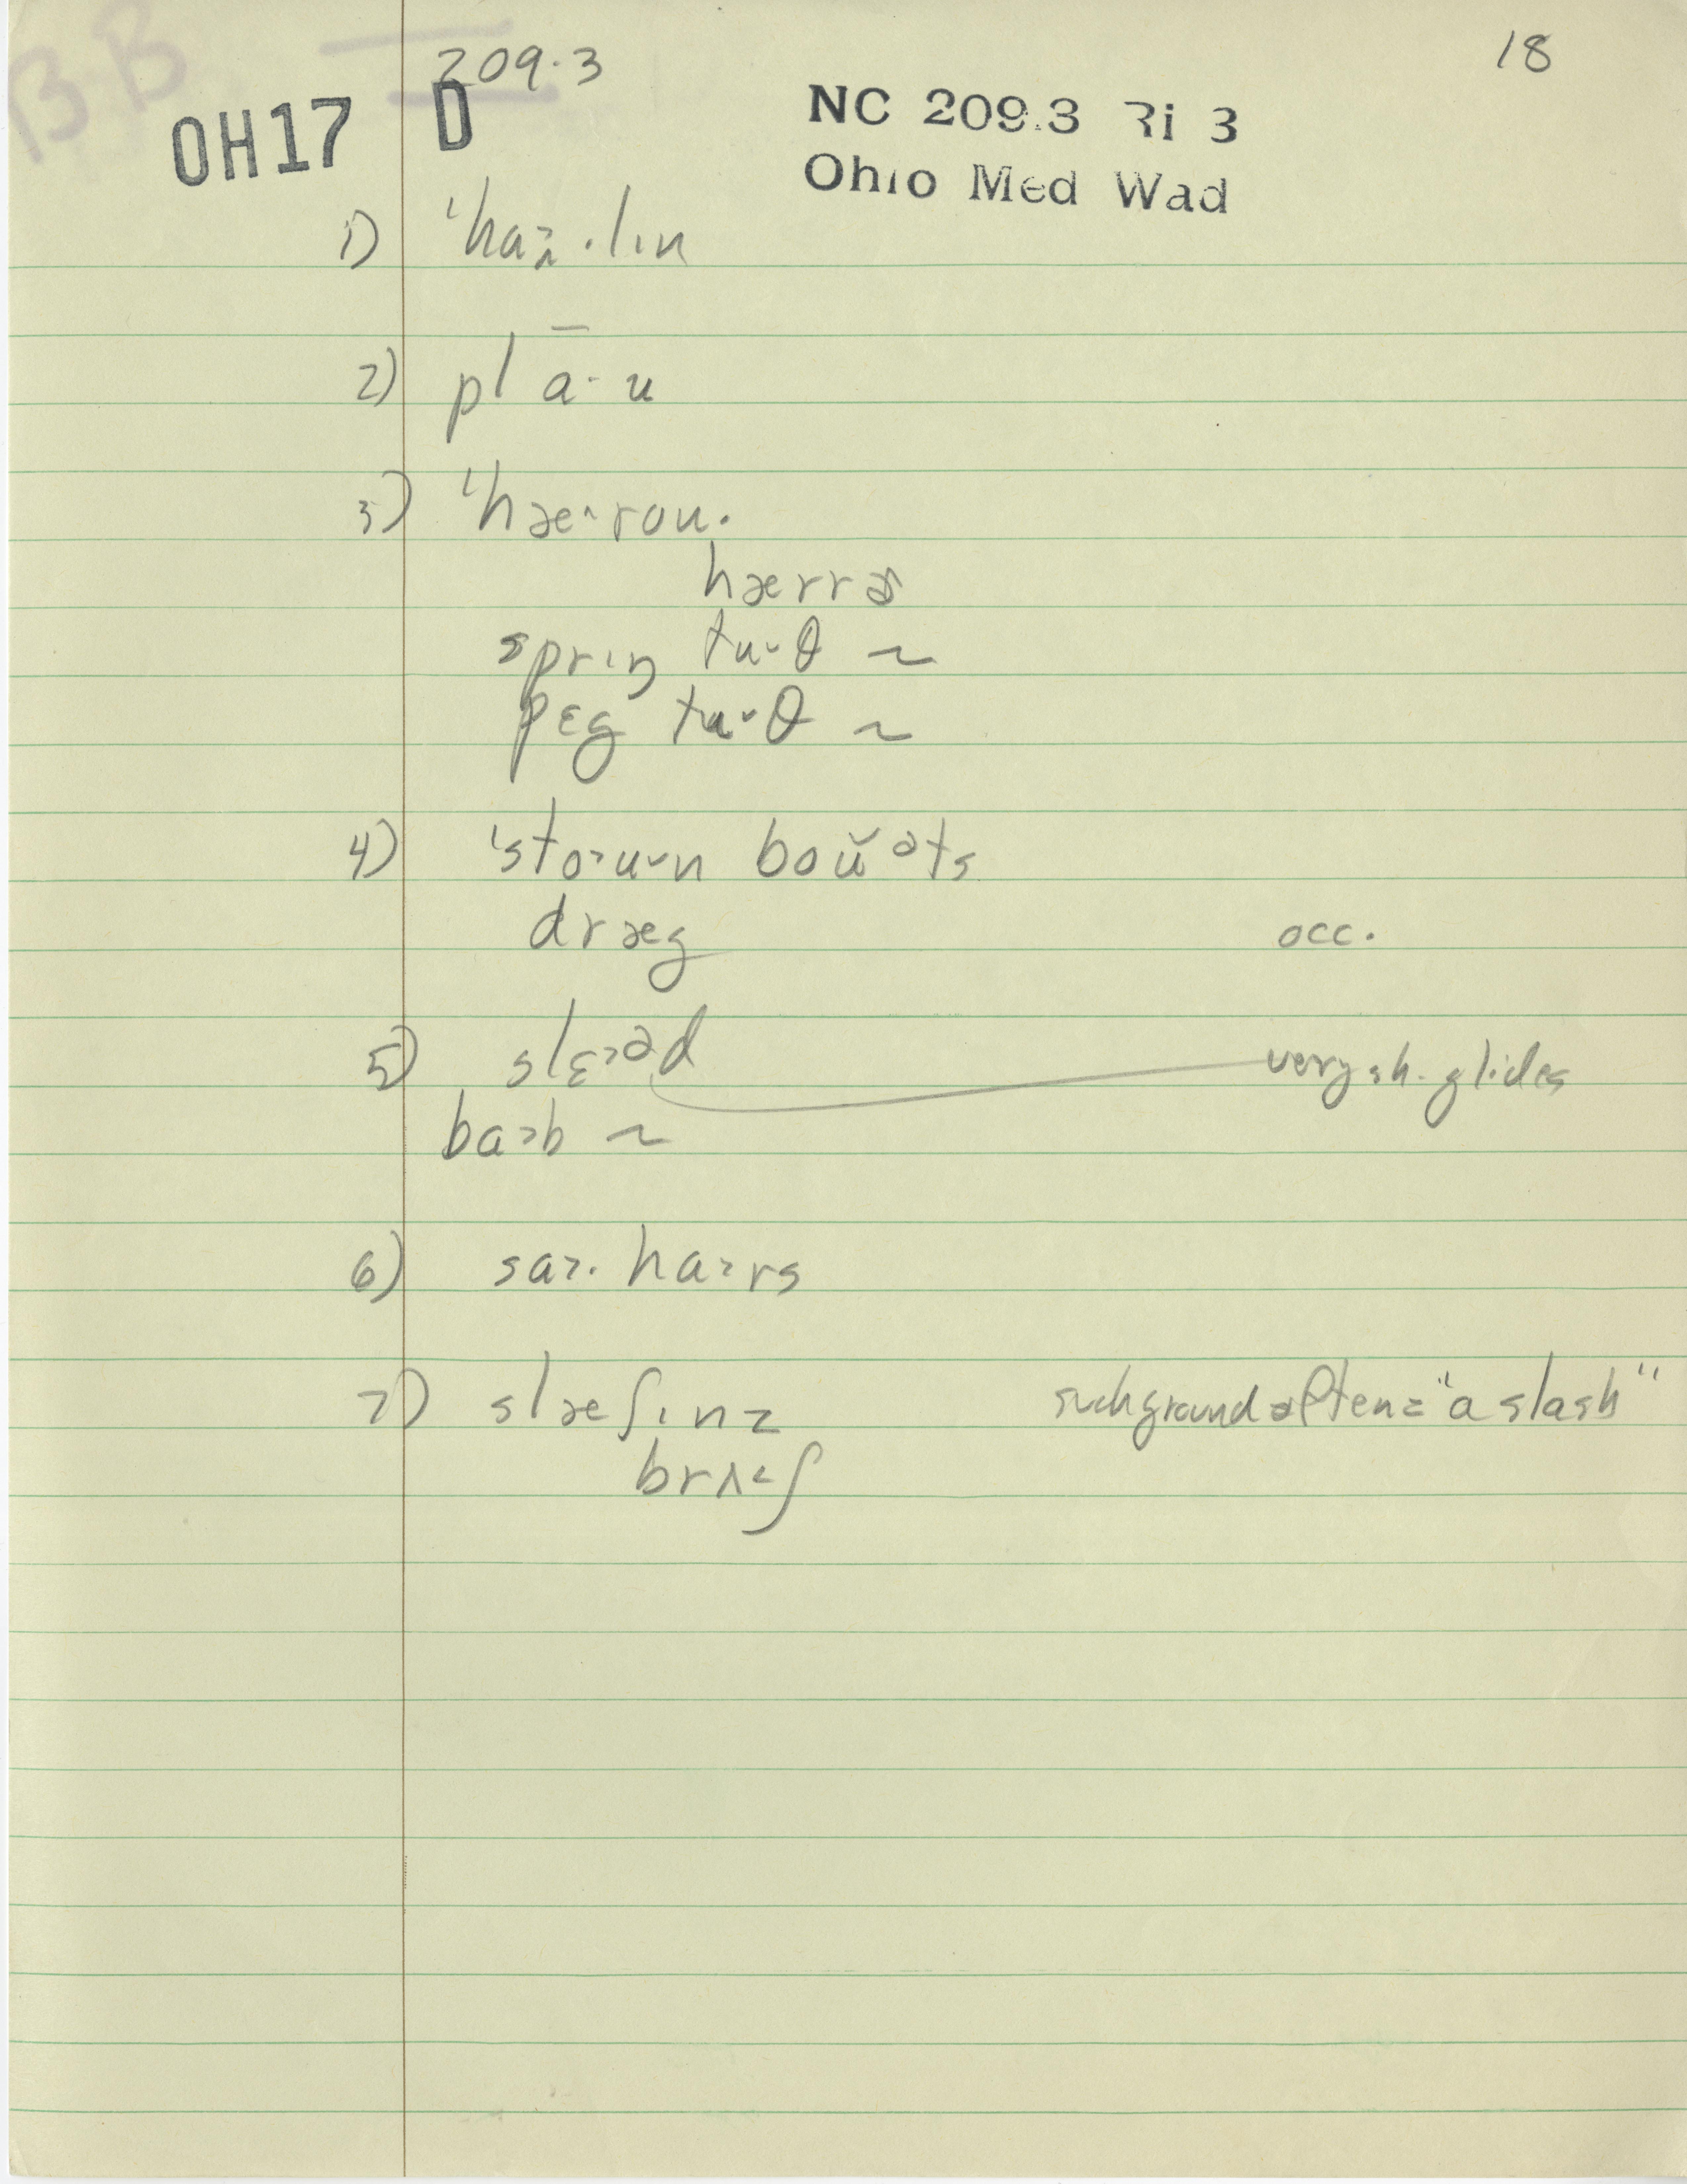 B.B
209.3
18
OH17 D
NC 209.3 Ri 3
Ohio Med Wad
1) ˈha˃ᵼ·lɪn
2) pl a· u
3) ˈhæ^roʊ·
hærrə
sprɪŋ tu˅θ ~
pɛg tu˅θ ~
4) ˈsto˃u˅n boŭəts
dræg occ.
5) slɛ˃əd very sh. glides
ba˃b ~
6) sa˃· ha˃rs
7) slæʃɪnz such ground often = "a slash"
brʌ˂ʃ